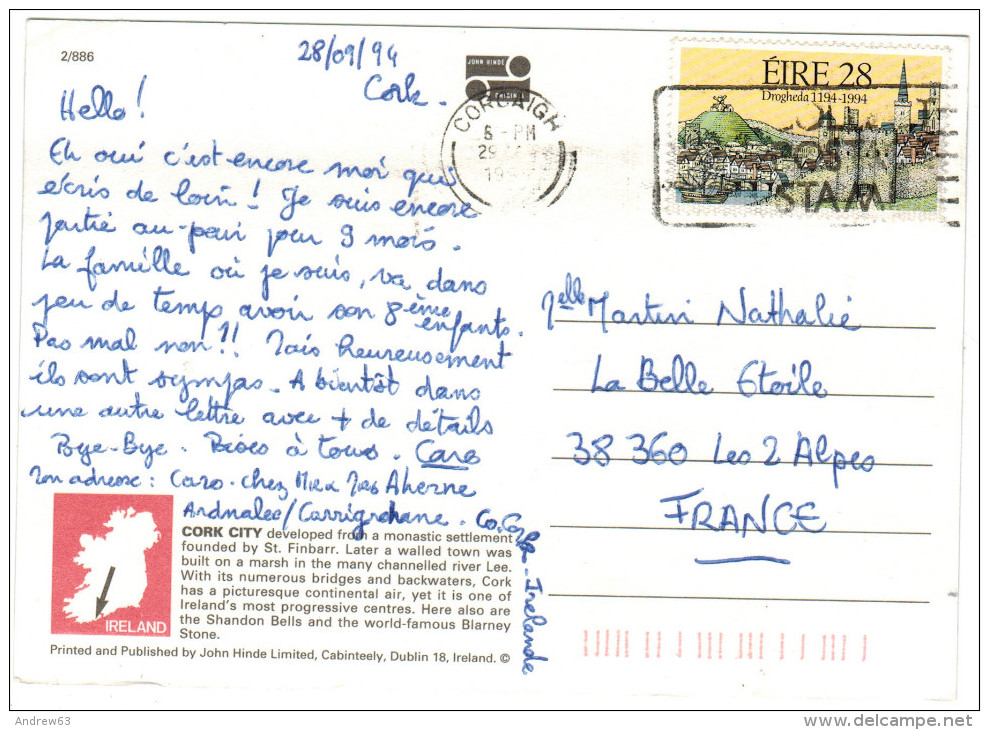 2/886
28/09/94
Cork.
JOHN HINDE
Hello!
Eh oui c'est encore moi qui
écris de loin! Je suis encore
partie au-pair pour 9 mois.
La famille où je suis, va dans
peu de temps avoir son 8ème
enfants.
Pas mal non?! Mais heureusement
ils sont sympas. A bientôt dans
une autre lettre avec + de détails
Bye-Bye. Bises à tous. Caro
Mon adresse: Caro chez Mr Mrs Aherne
/Carrigrohane. Co. Cork - Irelande
CORCAIGH
6 - PM
29
199
ÉIRE 28
Drogheda 1194-1994
STAM
Melle Martin Nathalie
La Belle Etoile
38 360 Les 2 Alpes
FRANCE
CORK CITY developed from a monastic settlement
founded by St. Finbarr. Later a walled town was
built on a marsh in the many channelled river Lee.
With its numerous bridges and backwaters, Cork
has a picturesque continental air, yet it is one of
Ireland's most progressive centres. Here also are
the Shandon Bells and the world-famous Blarney
Stone.
IRELAND
Printed and Published by John Hinde Limited, Cabinteely, Dublin 18, Ireland. ©
Andrew63
delcampe.net